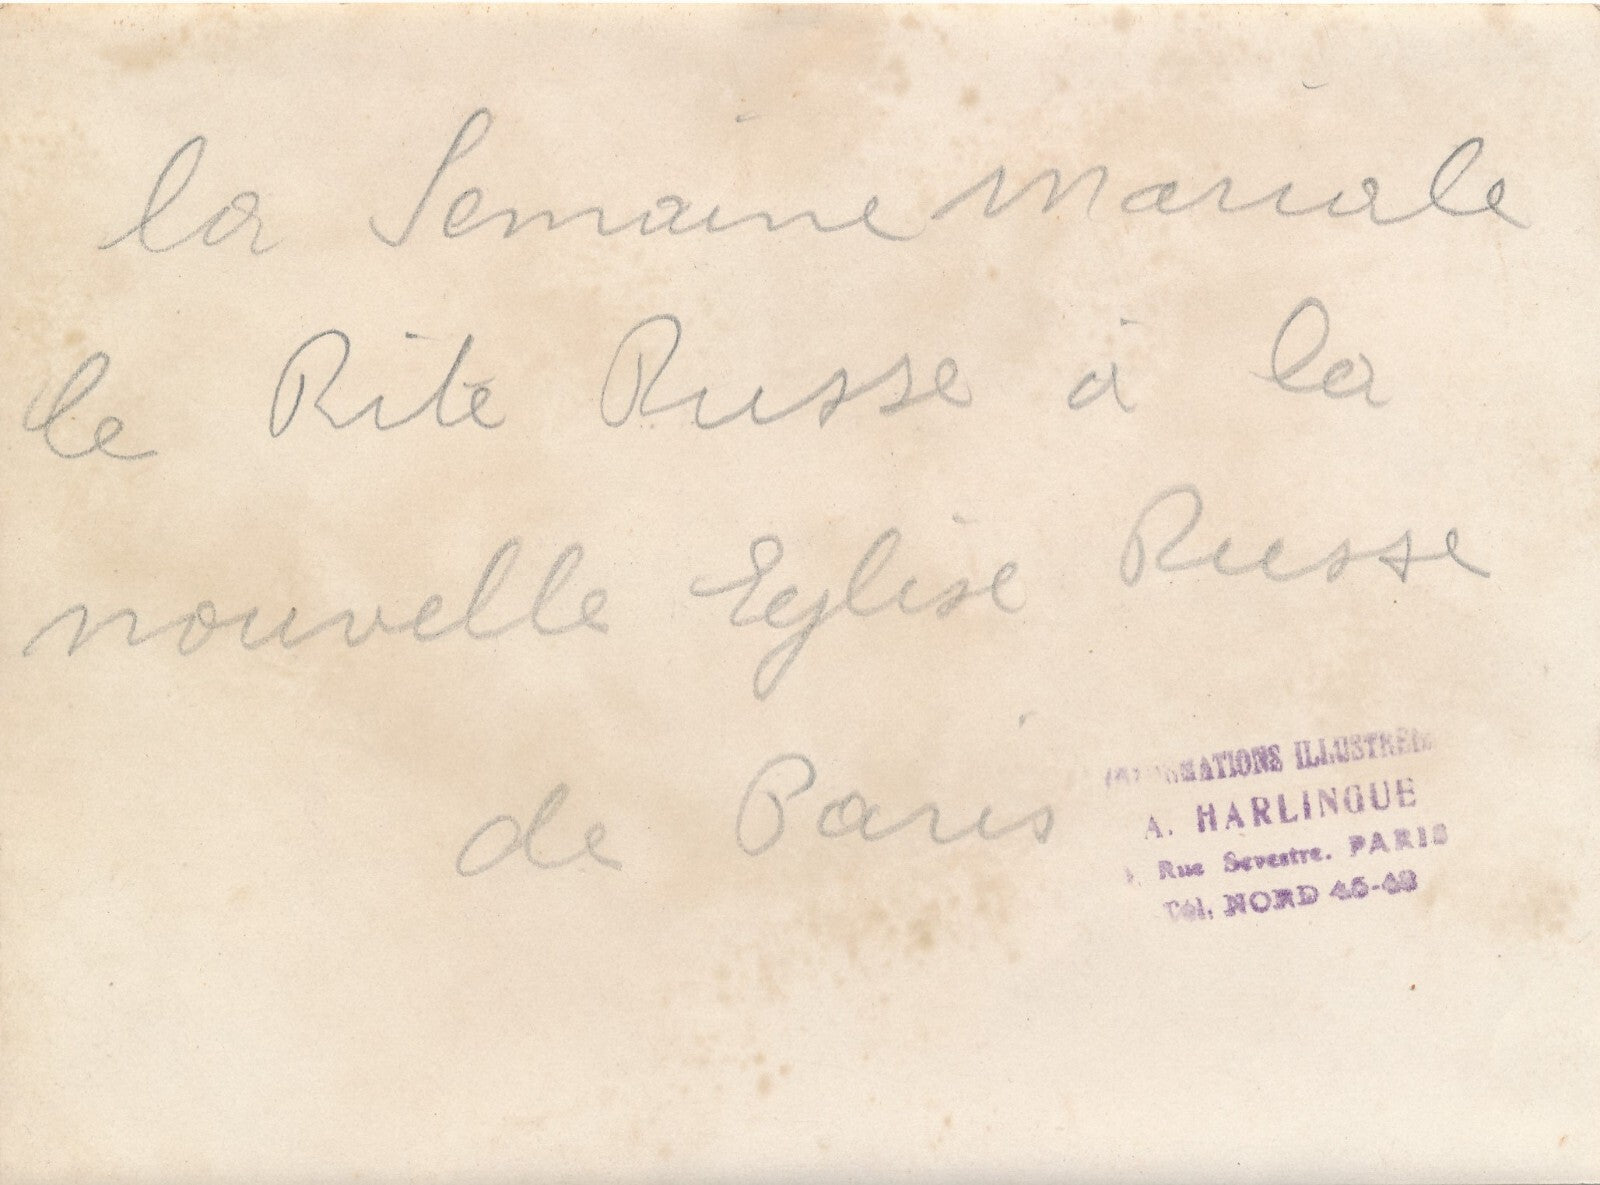 la Semaine Mariale
le Rite Russe à la
nouvelle Eglise Russe
de Paris
ILLUSTRÉES
A. HARLINGUE
Rue Sevestre. PARIS
Tél. NORD